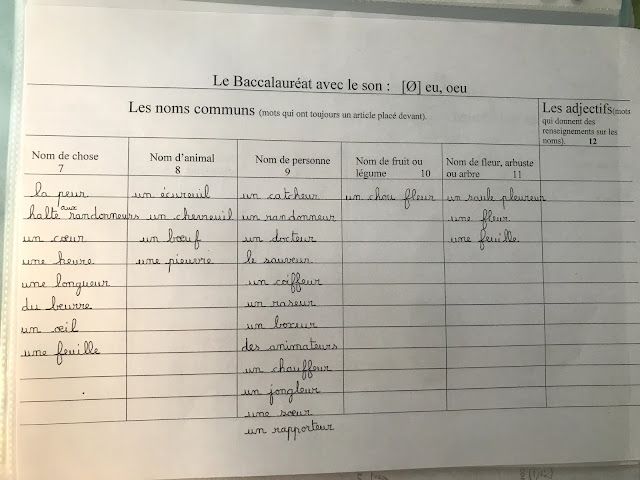 Le Baccalauréat avec le son : [Ø] eu, oeu
Les noms communs (mots qui ont toujours un article placé devant).
Les adjectifs(mots
qui donnent des
renseignements sur les
noms). 12
Nom de chose
7
Nom d'animal
8
Nom de personne
9
Nom de fruit ou
légume 10
Nom de fleur, arbuste
ou arbre 11
la peur un écureuil un catcheur un chou fleur un saule pleureur
halte aux randonneurs un chevreuil un randonneur une fleur
un cœur un bœuf un docteur une feuille
une heure une pieuvre le sauveur
une longueur un coiffeur
du beurre un raseur
un œil un boxeur
une feuille des animateurs
un chauffeur
un jongleur
une sœur
un rapporteur